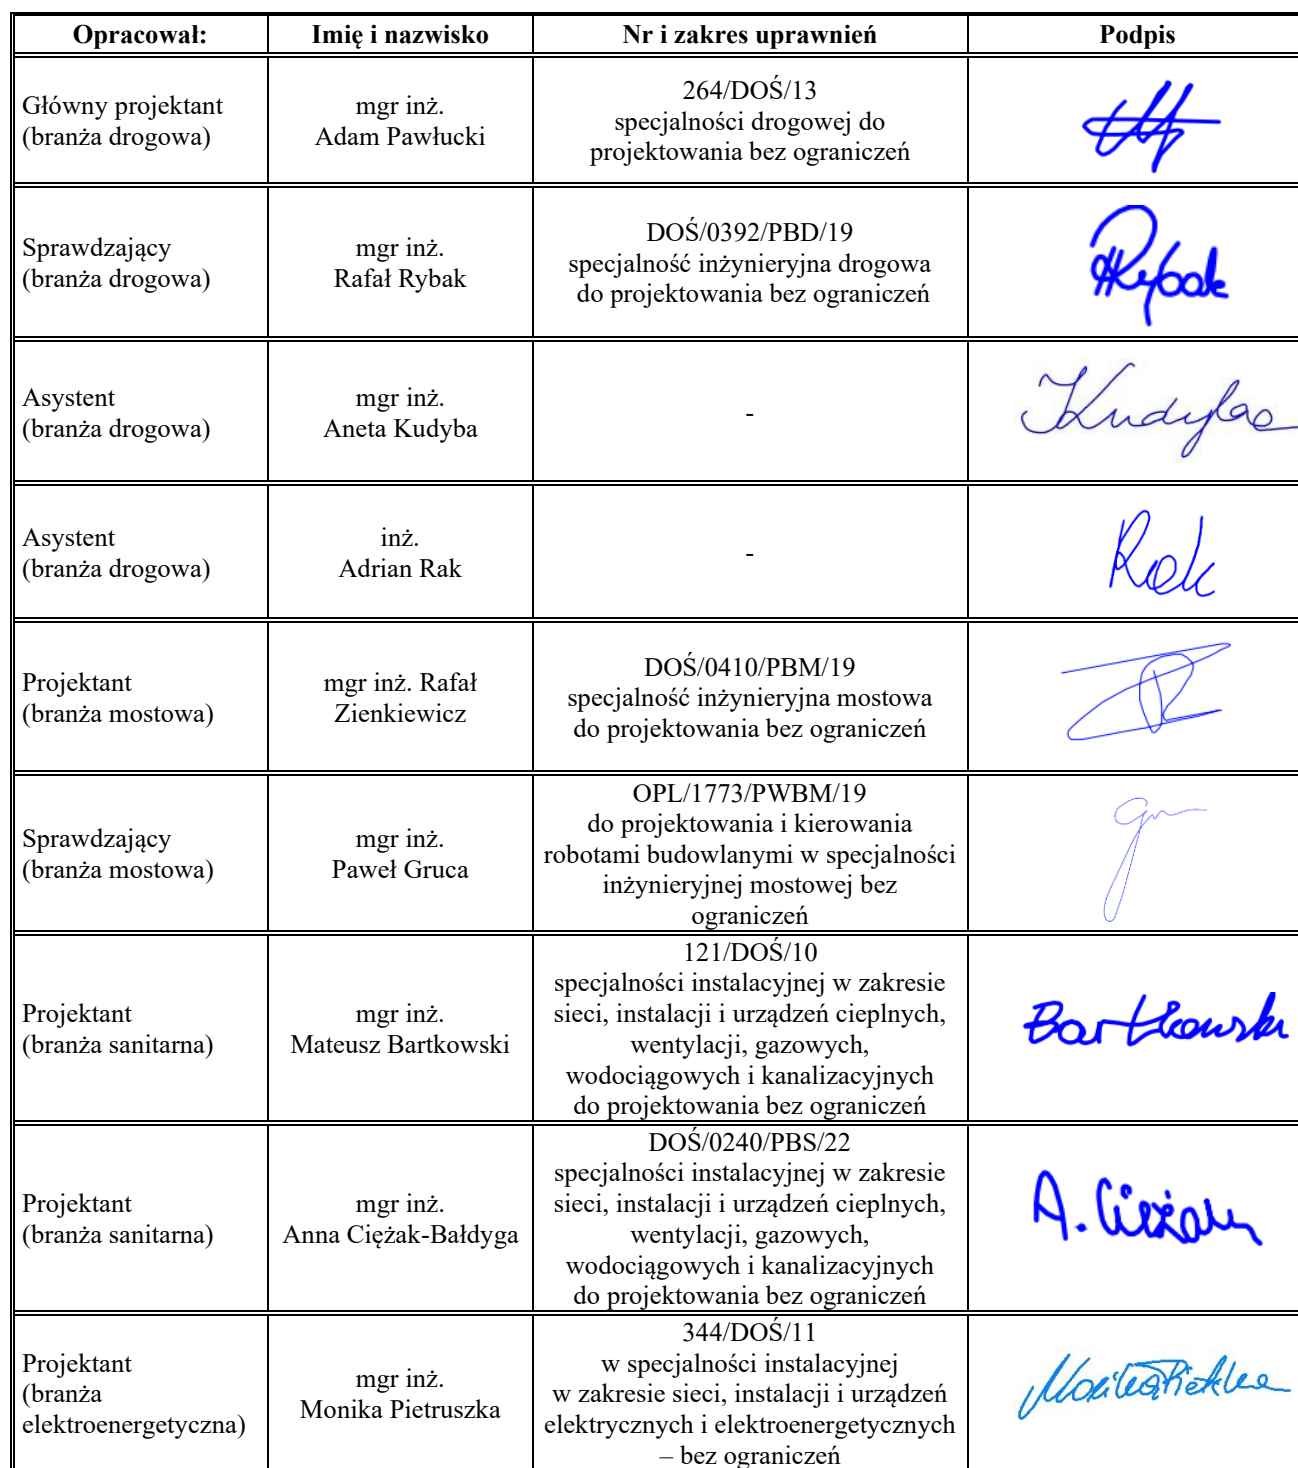 Opracował: Imię i nazwisko Nr i zakres uprawnień Podpis
Główny projektant
(branża drogowa)
mgr inż.
Adam Pawłucki
264/DOŚ/13
specjalności drogowej do
projektowania bez ograniczeń
Sprawdzający
(branża drogowa)
mgr inż.
Rafał Rybak
DOŚ/0392/PBD/19
specjalność inżynieryjna drogowa
do projektowania bez ograniczeń
Rybak
Asystent
(branża drogowa)
mgr inż.
Aneta Kudyba
-
Kudyba
Asystent
(branża drogowa)
inż.
Adrian Rak
-
Rak
Projektant
(branża mostowa)
mgr inż. Rafał
Zienkiewicz
DOŚ/0410/PBM/19
specjalność inżynieryjna mostowa
do projektowania bez ograniczeń
Sprawdzający
(branża mostowa)
mgr inż.
Paweł Gruca
OPL/1773/PWBM/19
do projektowania i kierowania
robotami budowlanymi w specjalności
inżynieryjnej mostowej bez
ograniczeń
Projektant
(branża sanitarna)
mgr inż.
Mateusz Bartkowski
121/DOŚ/10
specjalności instalacyjnej w zakresie
sieci, instalacji i urządzeń cieplnych,
wentylacji, gazowych,
wodociągowych i kanalizacyjnych
do projektowania bez ograniczeń
Bartkowski
Projektant
(branża sanitarna)
mgr inż.
Anna Ciężak-Bałdyga
DOŚ/0240/PBS/22
specjalności instalacyjnej w zakresie
sieci, instalacji i urządzeń cieplnych,
wentylacji, gazowych,
wodociągowych i kanalizacyjnych
do projektowania bez ograniczeń
A. Ciężak
Projektant
(branża
elektroenergetyczna)
mgr inż.
Monika Pietruszka
344/DOŚ/11
w specjalności instalacyjnej
w zakresie sieci, instalacji i urządzeń
elektrycznych i elektroenergetycznych
– bez ograniczeń